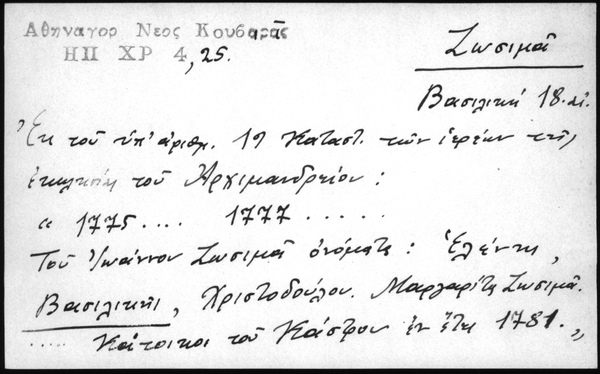 Αθηναγορ Νεος Κουβαρᾶς
ΗΠ ΧΡ 4, 25.
Ζωσιμᾶ
Βασιλική 18. αἰ.
Ἐκ τοῦ ὑπ' ἀριθμ. 19 Καταστ. τῶν ἱερέων τῆς
ἐκκλησίας τοῦ Ἀρχιμανδρείου :
« 1775 .... 1777 ......
Τοῦ Ἰωάννου Ζωσιμᾶ ὀνόματα : Ἑλένης,
Βασιλικῆς, Χριστοδούλου. Μαργαρίτη Ζωσιμᾶ.
..... Κάτοικοι τοῦ Κάστρου ἐν ἔτει 1781. »